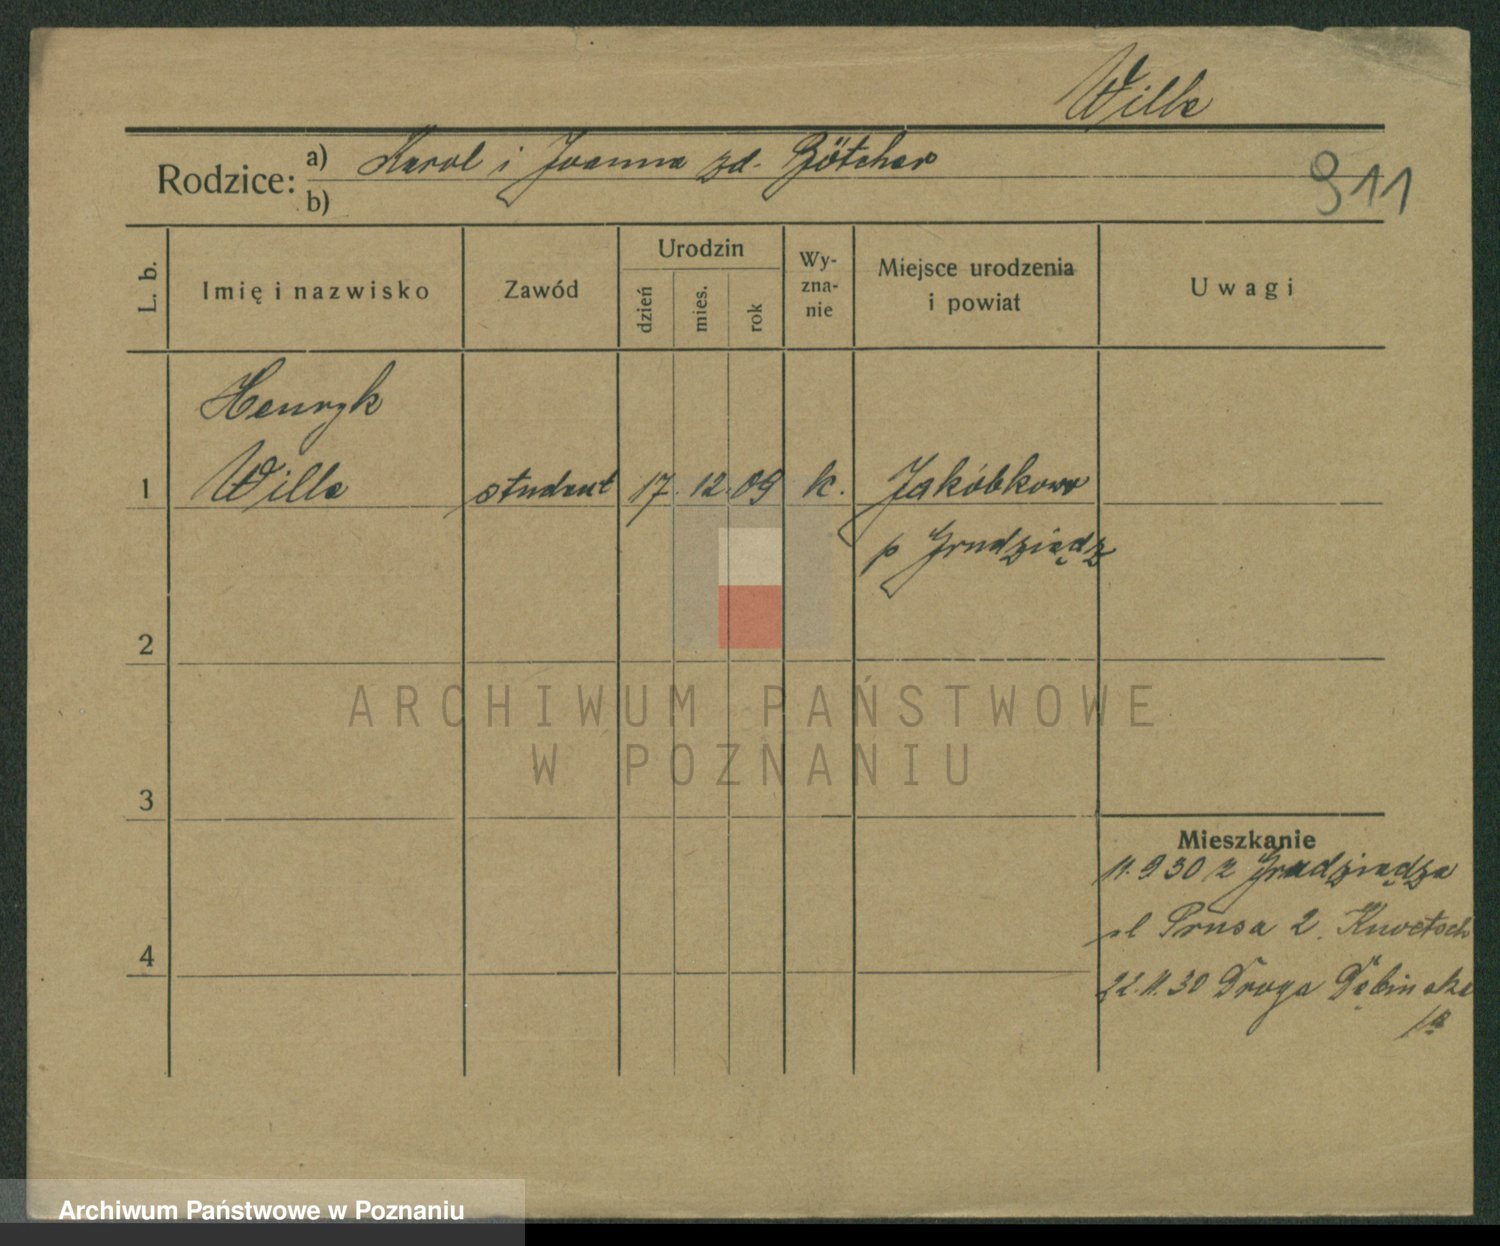 Wille
Rodzice: a) Karol i Joanna zd. Bötcher
b)
911
L. b. Imię i nazwisko Zawód Urodzin dzień mies. rok Wy-zna-nie Miejsce urodzenia i powiat Uwagi
Henryk
1 Wille student 17. 12. 09 k. Jakóbkowo
p Grudziądz
2
ARCHIWUM PAŃSTWOWE
W POZNANIU
3
Mieszkanie
11.9 30 z Grudziądza
ul Prusa 2.
4
22.11.30 Droga Dębinska
1a
Archiwum Państwowe w Poznaniu